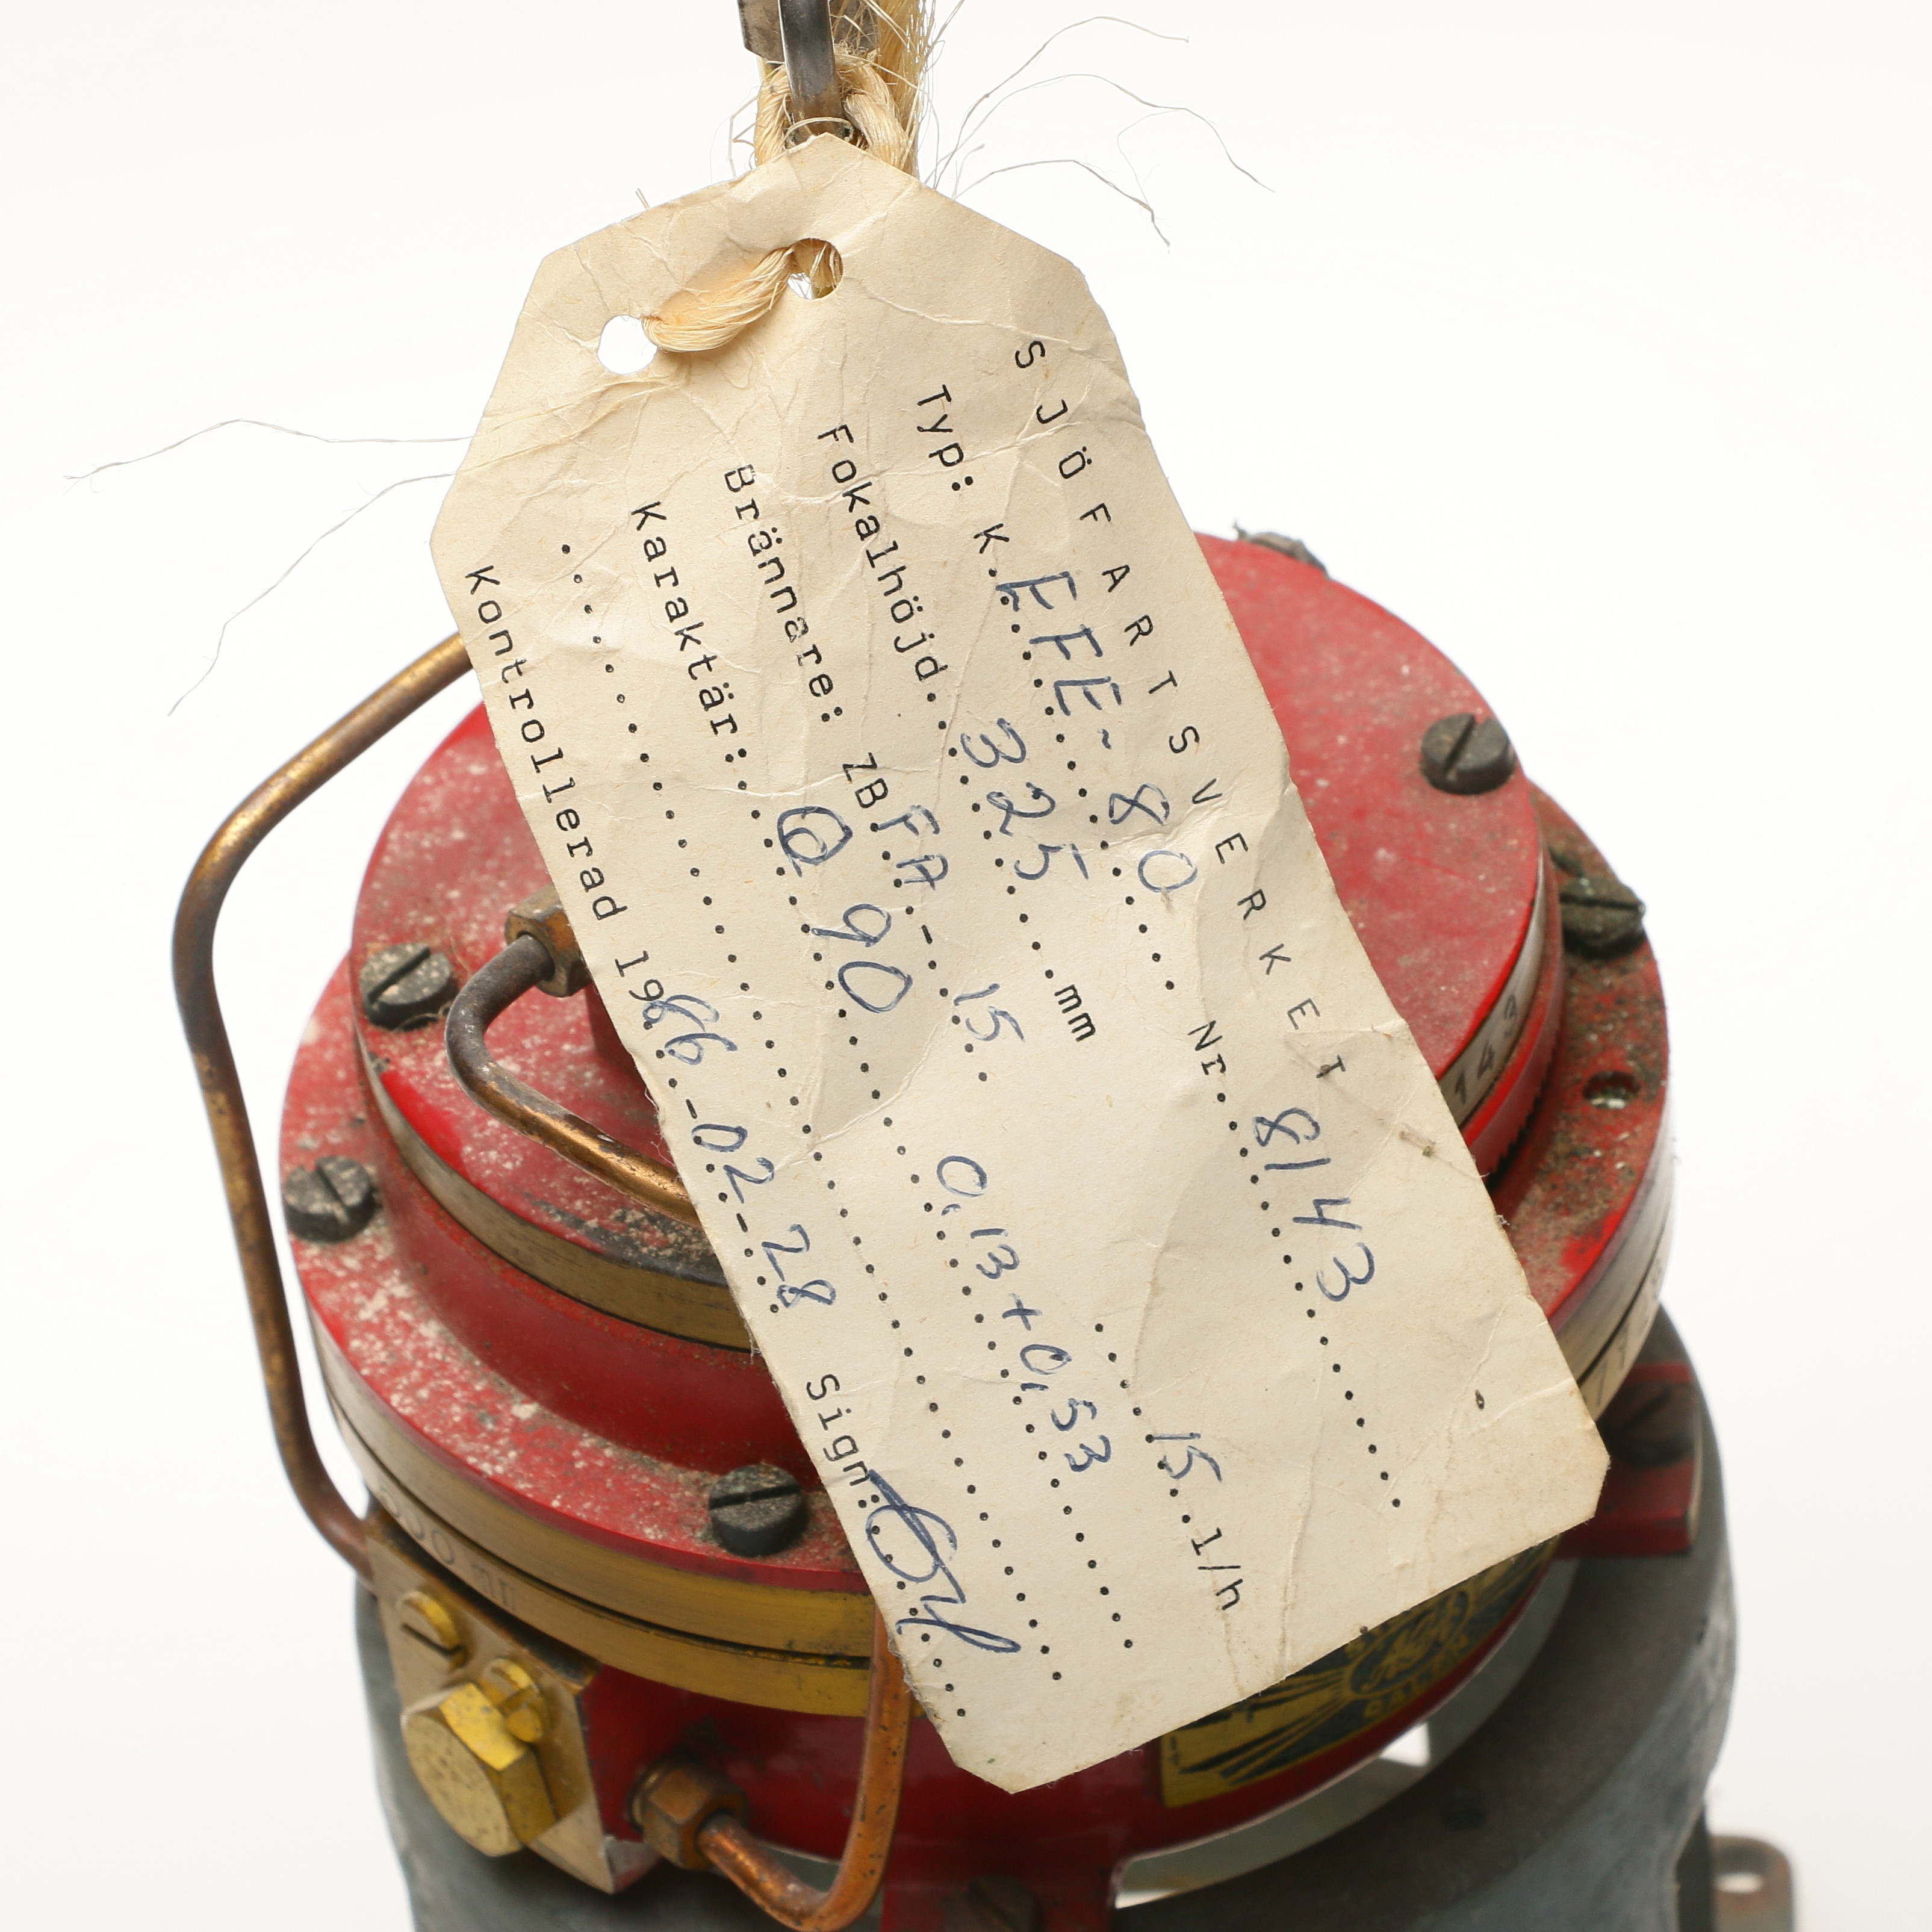 SJÖFARTSVERKET
Typ: K.EFE-80 Nr. 8143
Fokalhöjd. 325 mm
Brännare: ZB FA-15 15 l/h
Karaktär: Q 90 0,13+0,53
Kontrollerad 1986-02-28 Sign: